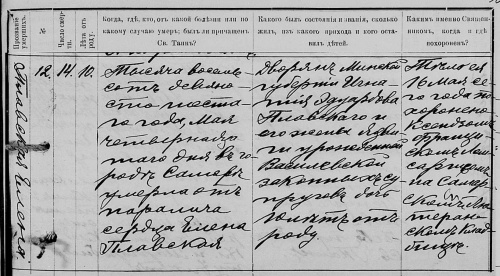 Прозвание умершихъ.
№
Число смерти.
Лѣта отъ роду.
Когда, гдѣ, кто, отъ какой болѣзни или по какому случаю умеръ; былъ ли причащенъ Св. Таинъ?
Какого былъ состоянія и званія, сколько жилъ, изъ какого прихода и кого оставилъ дѣтей.
Какимъ именно Священникомъ, когда и гдѣ похороненъ?
Плавская Елена
12.
14.
10.
Тысяча восемь
сотъ девяно
сто шестаго
года, Мая
четырнадца
таго дня въ го
родѣ Самарѣ
умерла отъ
паралича
сердца Елена
Плавская
Дворянъ Минской
губерніи Игна
тія Эдуардова
Плавскаго и
его жены Ядви
ги урожденной
Василевской
законныхъ су
пруговъ дочь
10 лѣтъ отъ
роду.
Тѣло ея
16 Мая се
го года по
хоронено
Ксендзомъ
Франци
скомъ
на Самар
скомъ Лю
теран
скомъ Клад
бищѣ.